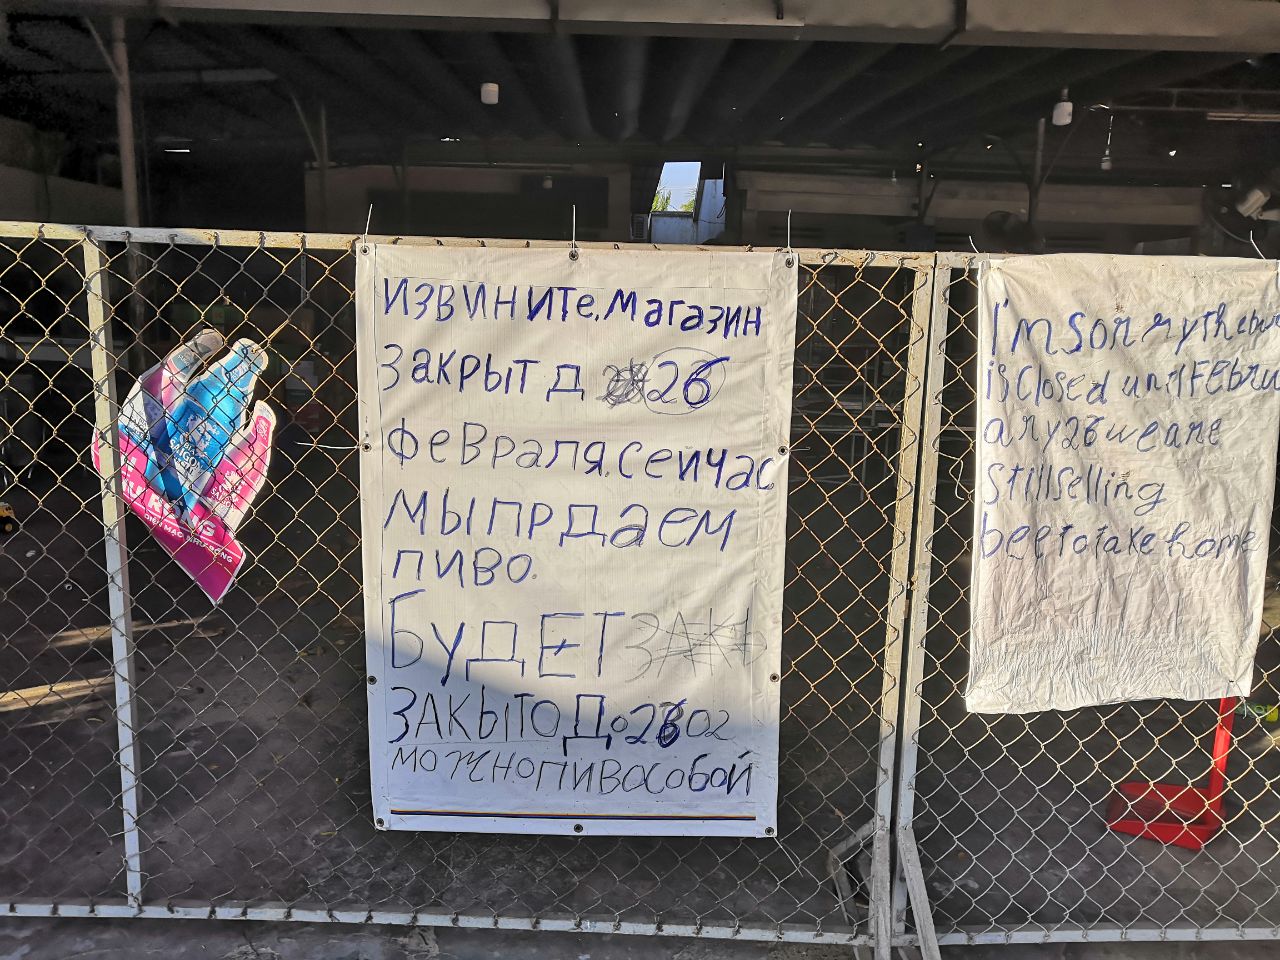 SAIGON
DIỆN MẠO
ИЗВИНИТе, магазин
Закрыт д 26
февраля, сейчас
мы прдаем
пиво.
БУДЕТ
ЗАКЫТО До 26 02
можно пиво собой
I'm sorry the
is closed until Febru
ary 26 we are
still selling
beer to take home